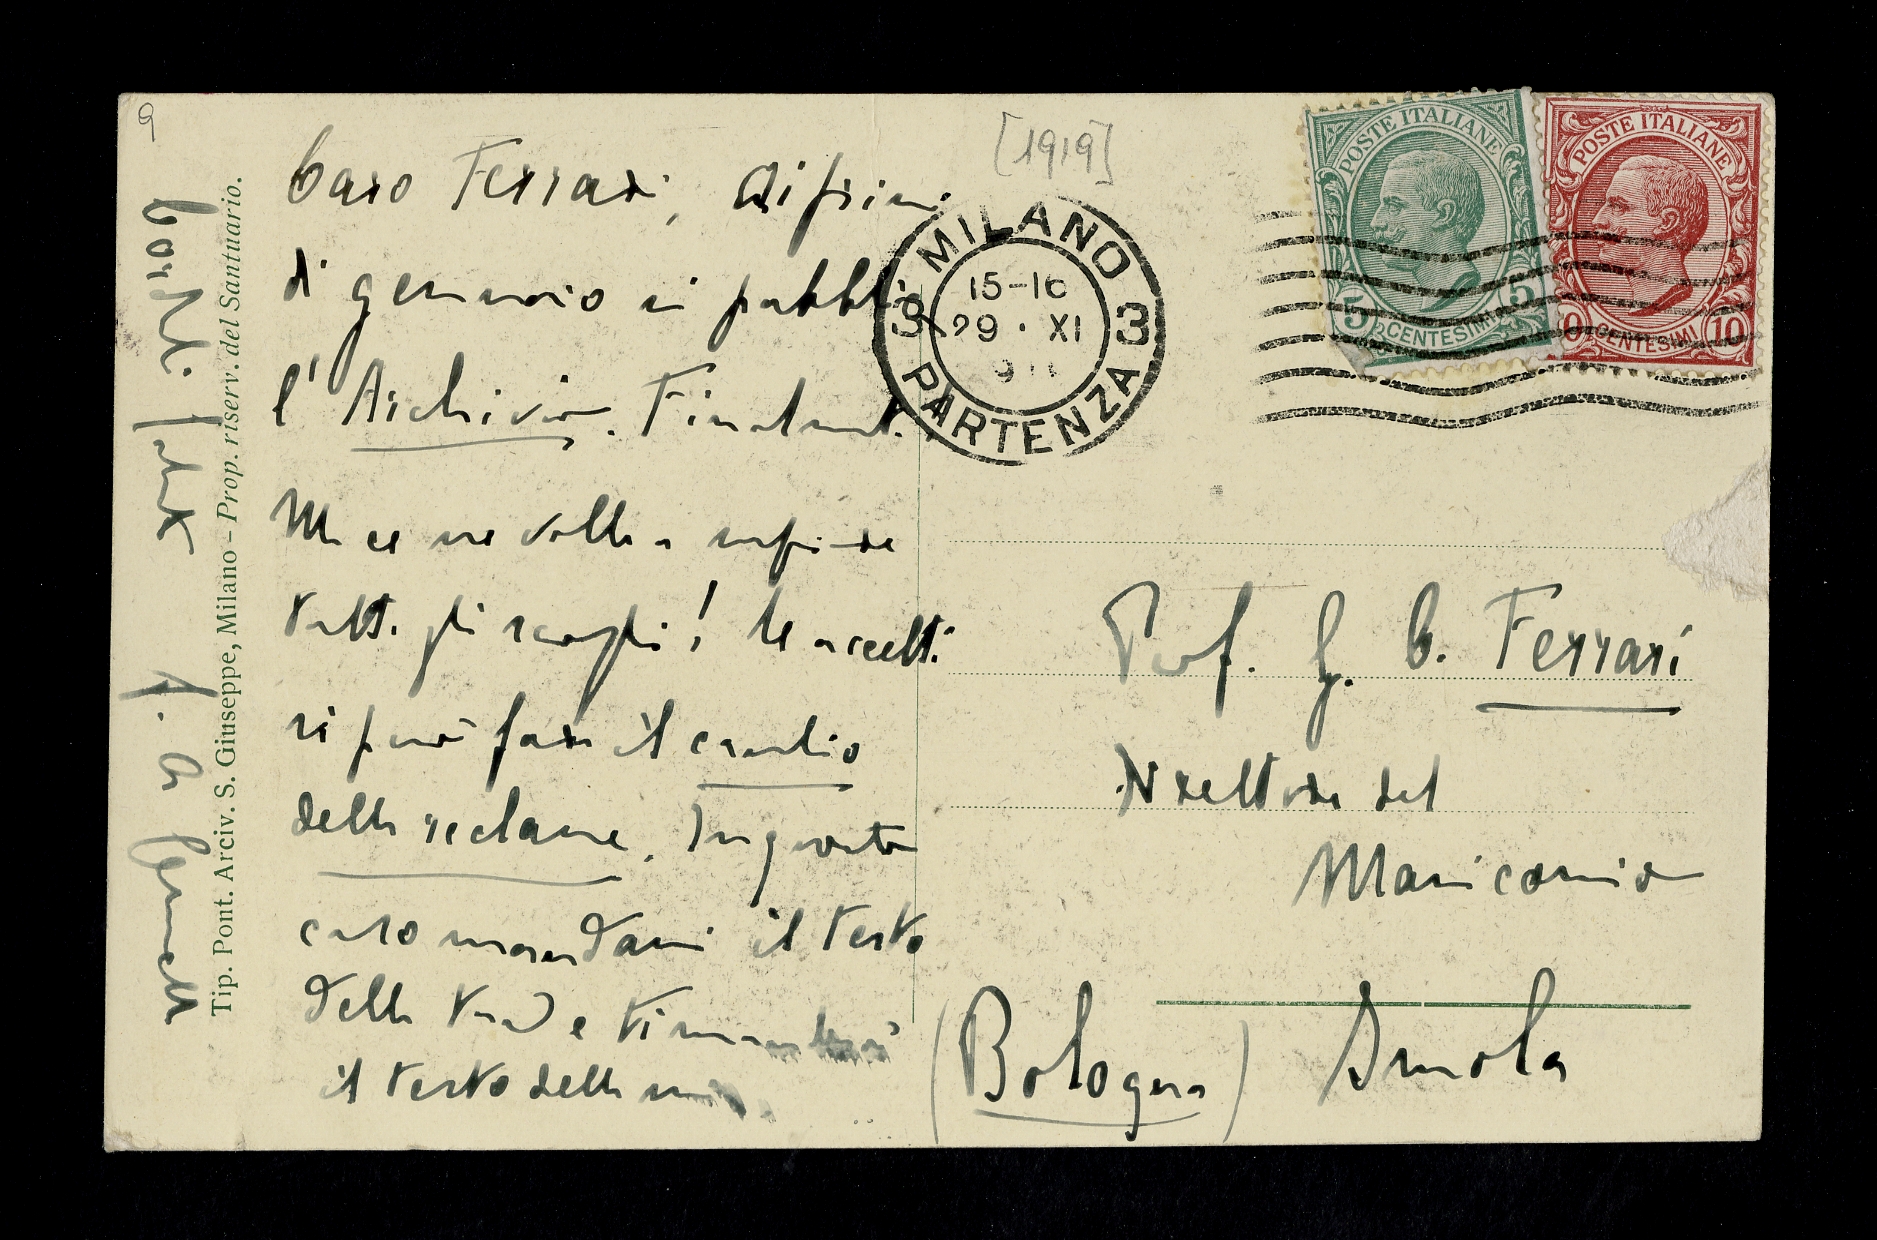 9
[1919]
Caro Ferrari, Ai primi
di gennaio si pubbli
l'Archivio. Finalmente.
Ma ce ne volle a
tutti gli scogli! Se accetti
si può fare il cambio
della reclame. In questo
caso mandami il testo
della tua e ti manderò
il testo della mia
Cordiali saluti
f. A Gemelli
Tip. Pont. Arciv. S. Giuseppe, Milano - Prop. riserv. del Santuario.
MILANO
3 3
15-16
29 · XI
PARTENZA
POSTE ITALIANE
5 CENTESIMI 5
POSTE ITALIANE
CENTESIMI 10
Prof. G. C. Ferrari
Direttore del
Manicomio
(Bologna) Imola